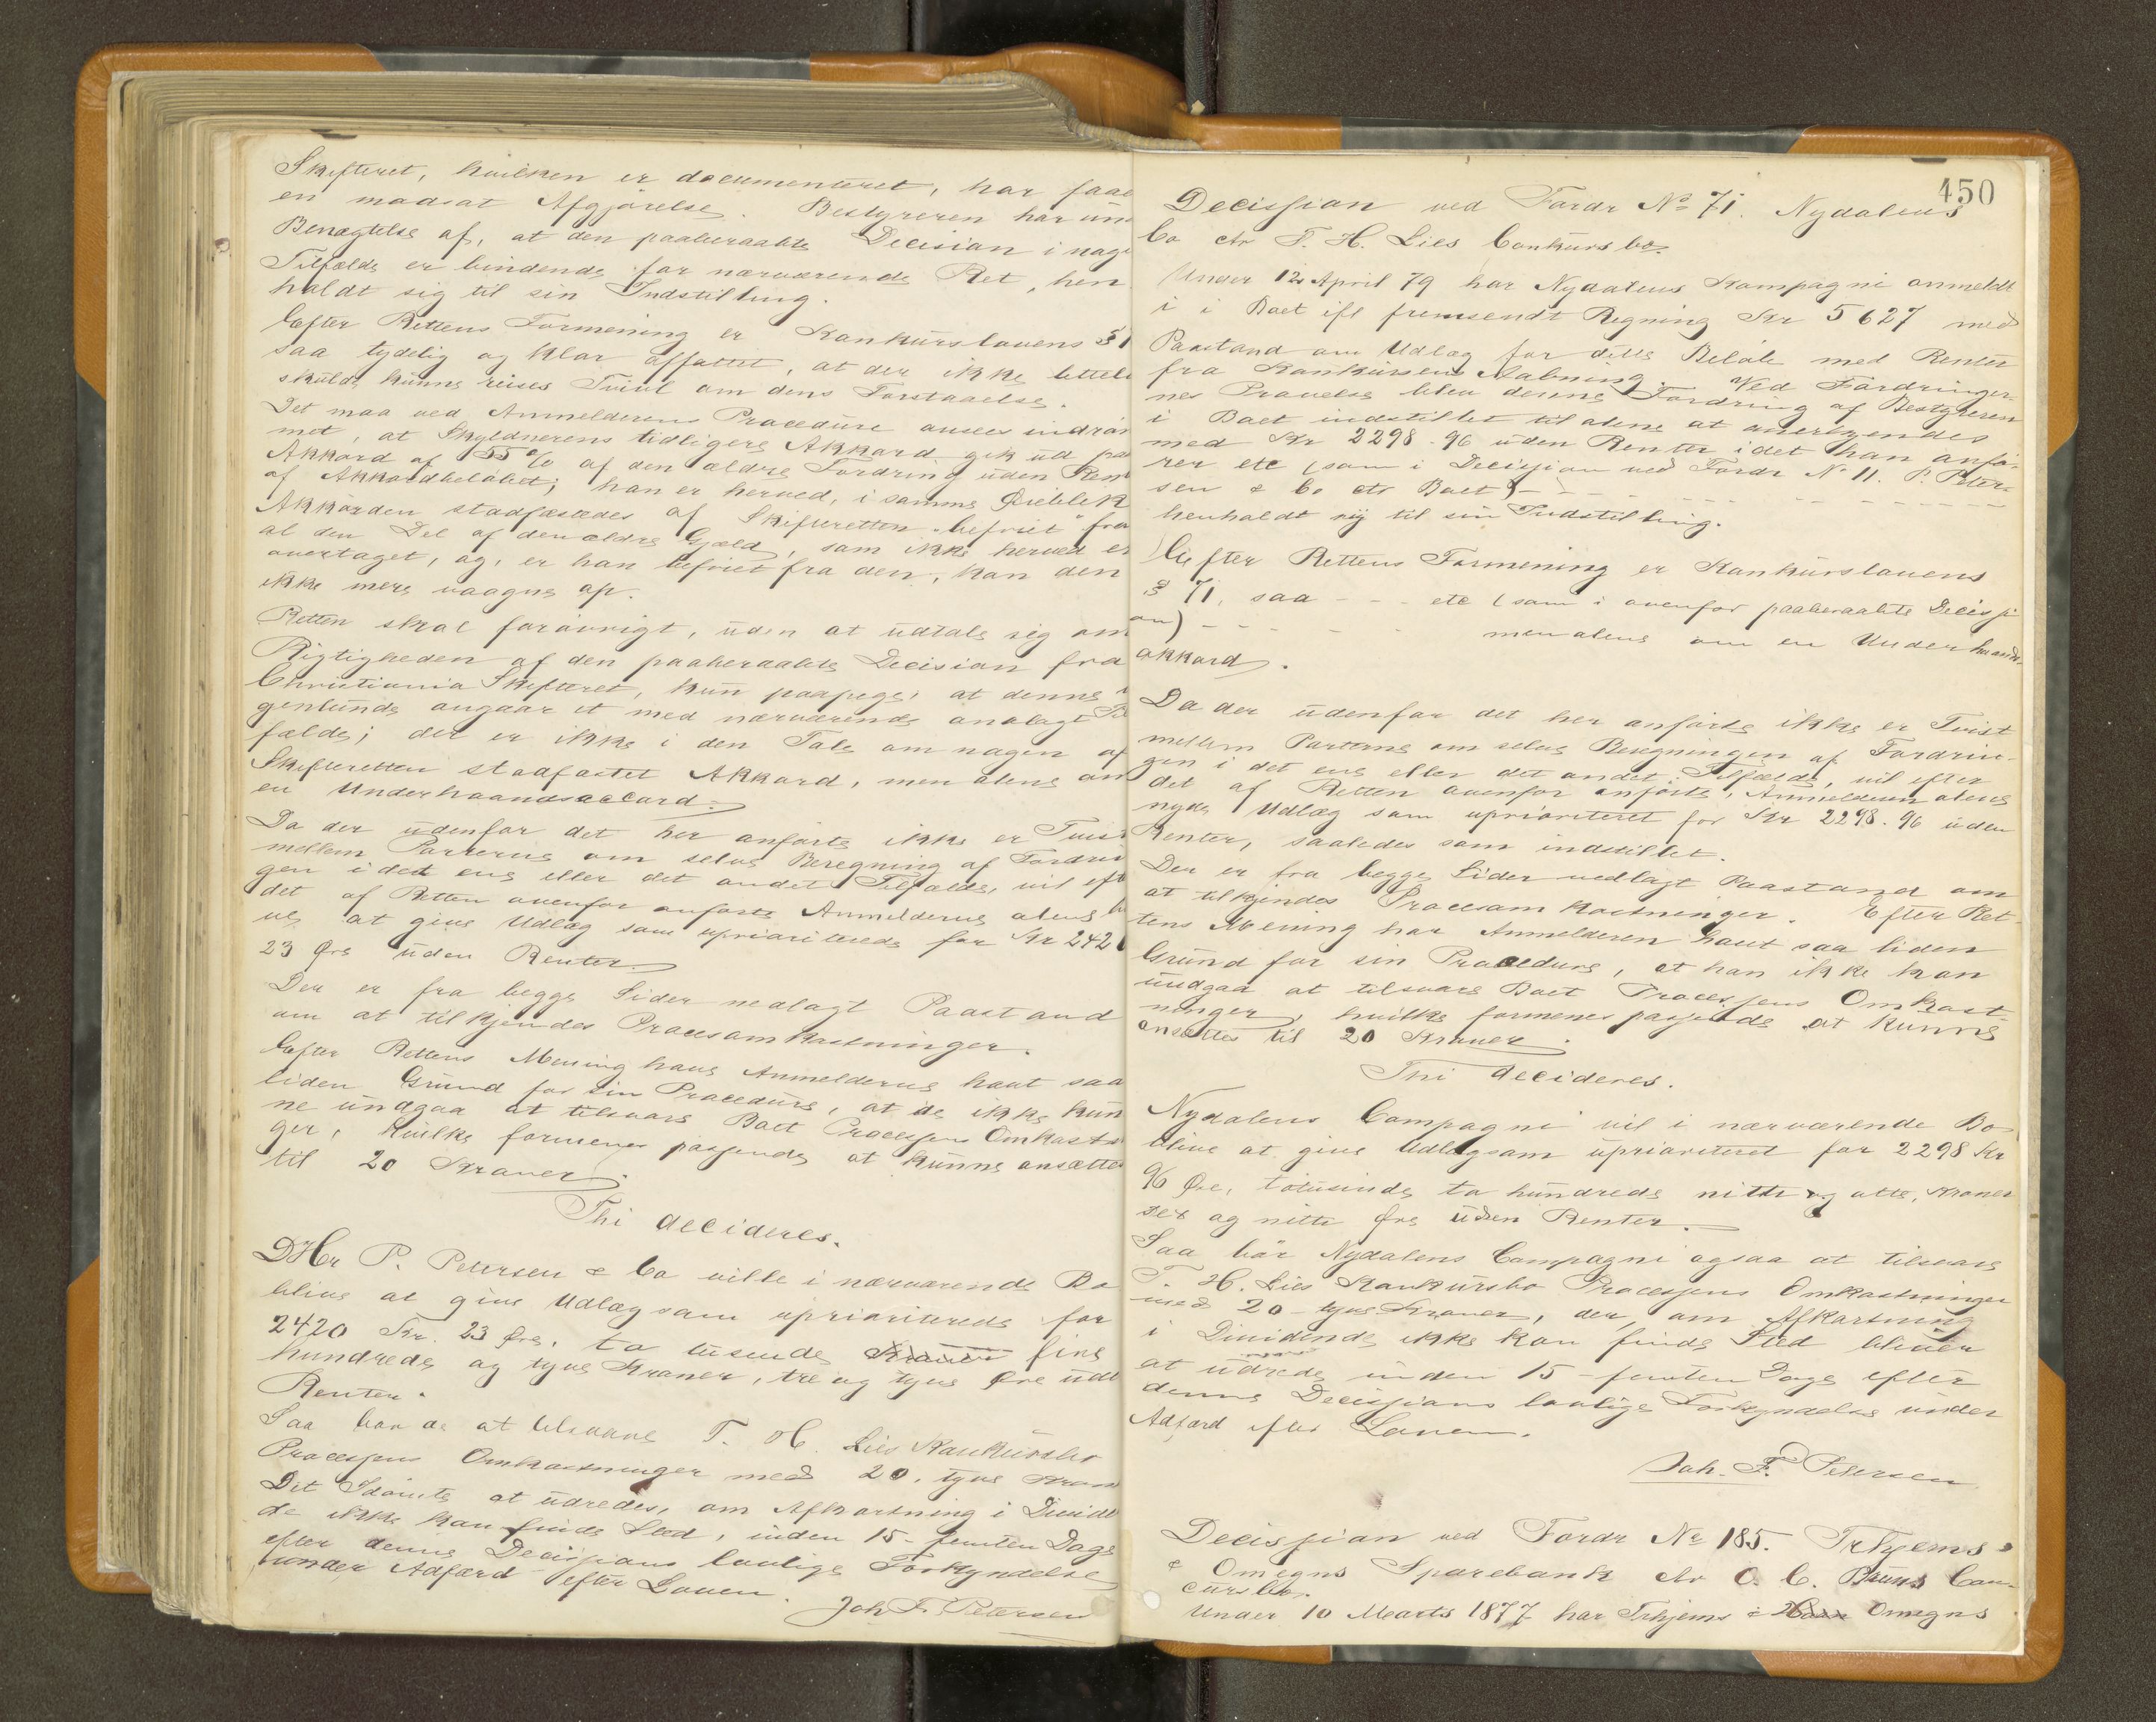 Skifteret, hvilken er documenteret, har faae
en modsat Afgjørelse. Bestyreren har un
Benægtelse af, at den paaberaabte Decision i nag
Tilfælde er bindende for nærværende Ret, hen
holdt sig til sin Indstilling.
Efter Rettens Formening er Konkurslovens §
saa tydelig og klar affattet, at der ikke lettel
skulde kunne reises Tvivl om dens Forstaaelse.
Det maa ved Anmelderens Procedure ansees indrøm
met, at Skyldnerens tidligere Akkord gik ud paa
Akkord af 55 % af den ældre Fordring uden Ren
af Akkordbeløbet; han er herved, i samme Øieblik
Akkorden stadfæstedes af Skifteretten "befriet" fra
al den Del af den ældre Gjæld, som ikke herved er
overtaget, og, er han befriet fra den, kan den
ikke mere vaagne op.
Retten skal forøvrigt, uden at udtale sig om
Rigtigheden af den paaberaabte Decision fra
Christiania Skifteret, kun paapege, at denne
genlunde angaar et med nærværende analogt Til
fælde; der er ikke i den Tale om nogen af
Skifteretten stadfæstet Akkord, men alene om
en Underhaandsaccord.
Da der udenfor det her anførte ikke er Tvist
mellem Parterne om selve Beregning af Fordrin
gen i det ene eller det andet Tilfælde, vil eft
det af Retten ovenfor anførte Anmelderne alene
ve at give Udlæg som uprioriterede for Kr 2420
23 Øre uden Renter.
Der er fra begge Sider nedlagt Paastand
om at tilkjendes Procesomkostninger.
Efter Rettens Mening have Anmelderne havt saa
liden Grund for sin Procedure, at de ikke kun
ne undgaa at tilsvare Boet Processens Omkostn
ger, hvilke formenes passende at kunne ansættes
til 20 Kroner.
Thi decideres.
DHr P. Petersen & Co ville i nærværende Bo
blive at give Udlæg som uprioriterede for
2420 Kr. 23 Øre, to tusende Kroner fire
hundrede og tyve Kroner, tre og tyve Øre uden
Renter.
Saa bør de at tilsvare T. H. Lies Konkursbo
Processens Omkostninger med 20, tyve Kron
Det Idømte at udredes, om Afkortning i Divide
de ikke kan finde Sted, inden 15 - femten Dage
efter denne Decissions lovlige Forkyndelse
under Adfærd efter Loven.
Joh F. Petersen
450
Decission ved Fordr No 71. Nydalens
Co ctr T. H. Lies Conkursbo.
Under 12 April 79 har Nydalens Kompagni anmeldt
i i Boet ifl fremsendt Regning Kr 5627 med
Paastand om Udlæg for dette Beløb med Renter
fra Konkursens Aabning. Ved Fordringer-
nes Prøvelse blev denne Fordring af Bestyreren
i Boet indstillet til alene at anerkjendes
med Kr 2298.96 uden Renter idet han anfø-
rer etc (som i Decission ved Fordr No 11. P. Peter-
sen & Co ctr Boet) - - - - - - - -
henholdt sig til sin Indstilling.
Efter Rettens Formening er Konkurslovens
§ 71, saa - - - etc (som i ovenfor paaberaabte Decissi
on) - - - - - men alene om en Underhaands-
akkord.
Da der udenfor det her anførte ikke er Tvist
mellem Parterne om selve Beregningen af Fordrin-
gen i det ene eller det andet Tilfælde, vil efter
det af Retten ovenfor anførte, Anmelderen alene
nyde Udlæg som uprioriteret for Kr 2298.96 uden
Renter, saaledes som indstillet.
Der er fra begge Sider nedlagt Paastand om
at tilkjendes Procesomkostninger. Efter Ret-
tens Mening har Anmelderen havt saa liden
Grund for sin Procedure, at han ikke kan
undgaa at tilsvare Boet Processens Omkost-
ninger, hvilke formenes passende at kunne
ansættes til 20 Kroner.
Thi decideres.
Nydalens Compagni vil i nærværende Bo
blive at give Udlæg som uprioriteret for 2298 Kr
96 Øre, totusinde to hundrede nitti og otte, Kroner
sex og nitti Øre uden Renter.
Saa bør Nydalens Compagni ogsaa at tilsvare
T. H. Lies Konkursbo Processens Omkostninger
med 20 - tyve Kroner, der, om Afkortning
i Dividende ikke kan finde Sted bliver
at udrede inden 15 - femten Dage efter
denne Decissions lovlige Forkyndelse under
Adfærd efter Loven.
Joh. F. Petersen
Decission ved Fordr No 185. Trhjems
& Omegns Sparebank ctr O. C. Bruns Con-
cursbo.
Under 10 Marts 1877 har Trhjems & Omegns